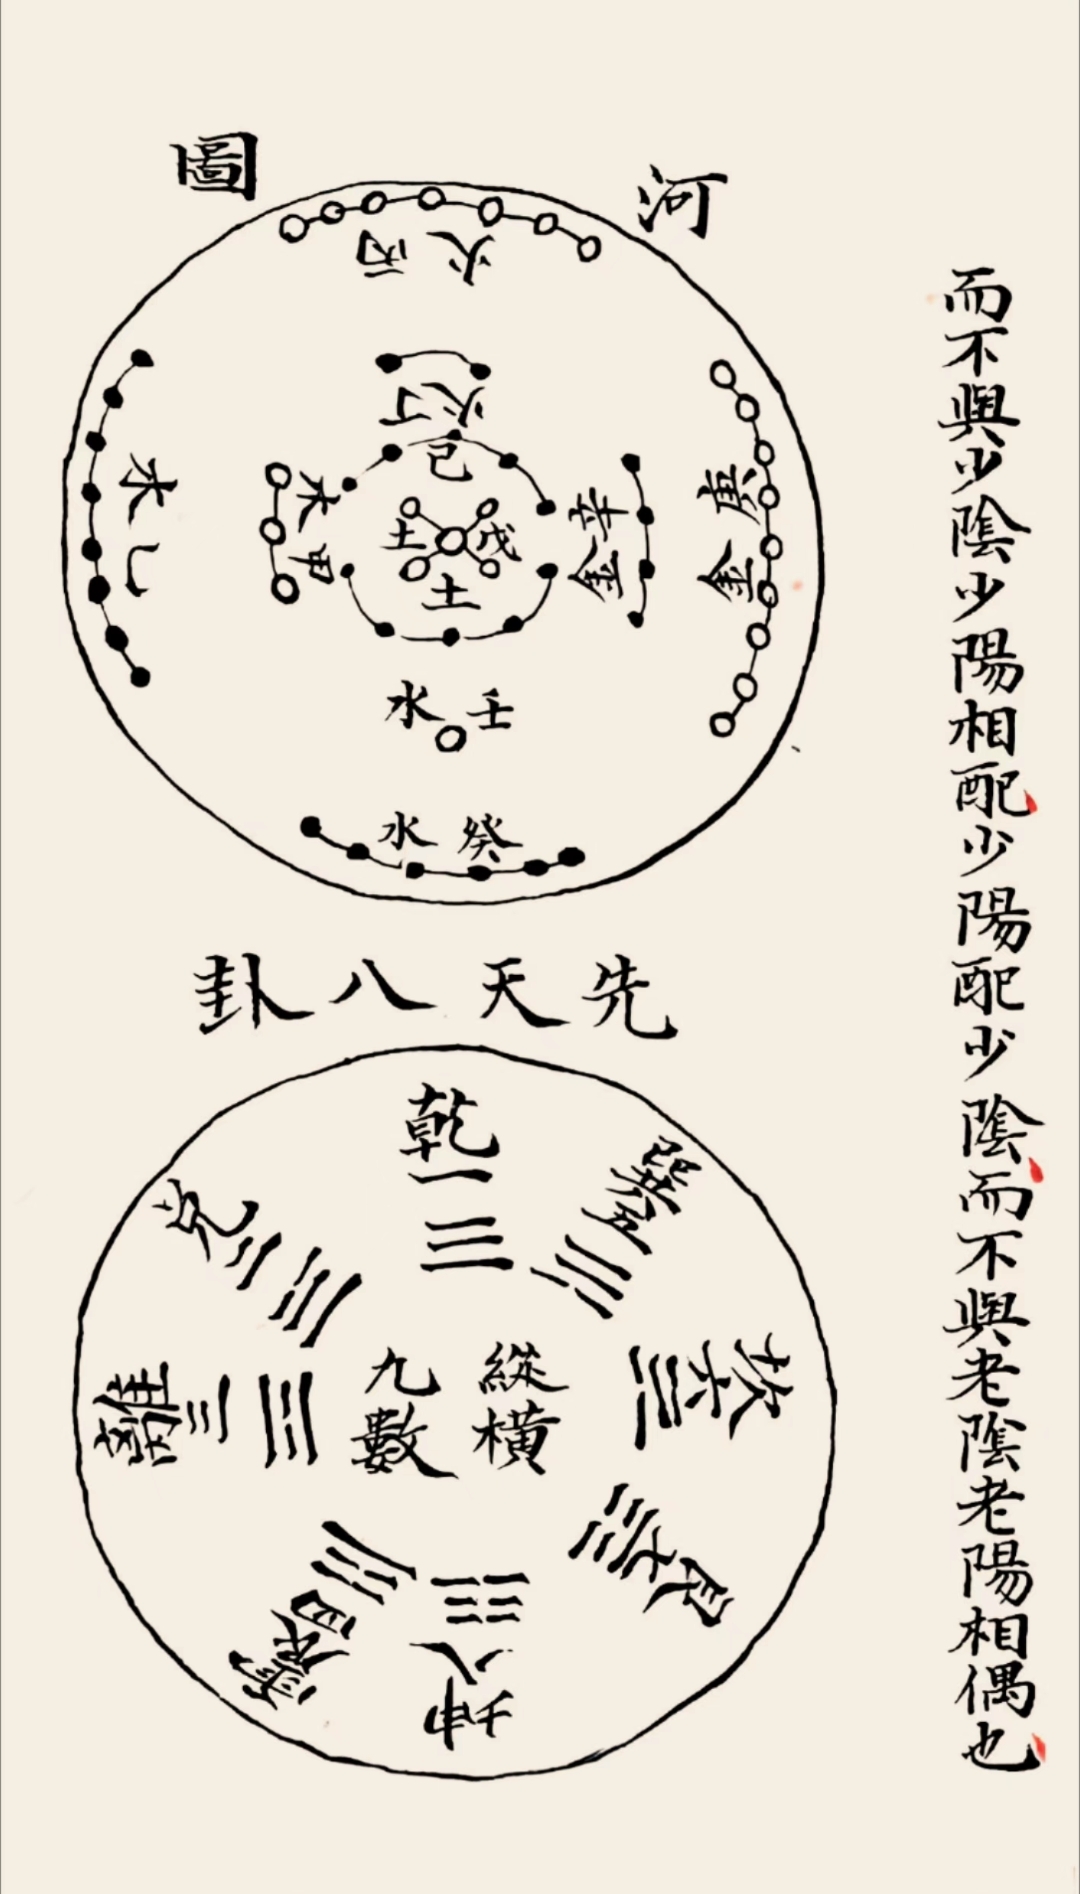 而不與少陰少陽相配少陽配少陰而不與老陰老陽相偶也
河圖
火丙
火丁
己
木乚
木甲
土戊
土
辛金
庚金
水壬
水癸
先天八卦
乾一
兌二
離三
震四
巽五
坎六
艮七
坤八
縱橫
九數